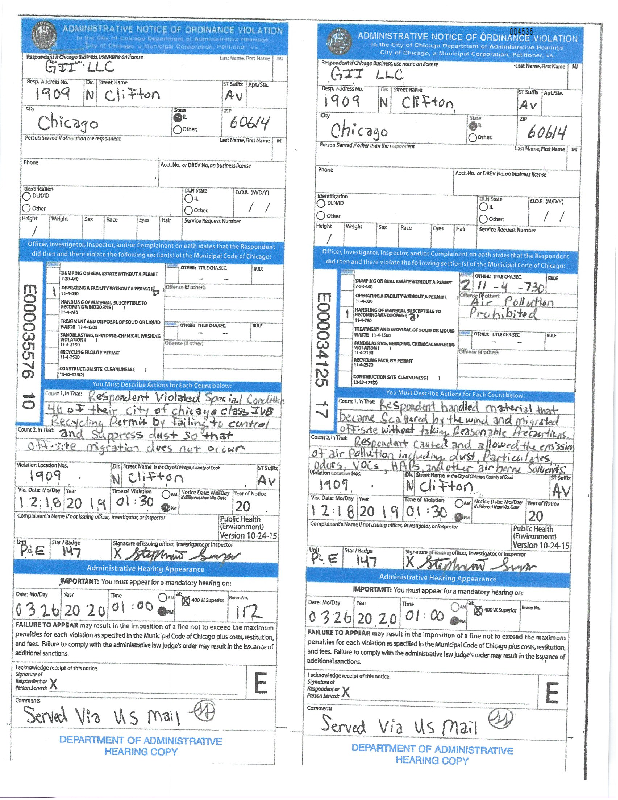 ADMINISTRATIVE NOTICE OF ORDINANCE VIOLATION
Respondent/Chicago Business Licensee on license Last Name, First Name MI
GII LLC
Resp. Address No. Dir. Street Name ST Suffix Apt./Ste.
1909 N Clifton Av
City State ZIP
Chicago IL 60614
Other
Person Served if other than the respondent Last Name, First Name MI
Phone Acct. No. or DREV No. on business license
Identification DLN State D.O.B. (M/D/Y)
DLN/ID IL
Other Other / /
Height Weight Sex Race Eyes Hair Service Request Number
/
Officer, Investigator, Inspector, and/or Complainant on oath states that the Respondent
did then and there violate the following section(s) of the Municipal Code of Chicago:
OTHER: TITLE-CHA-SEC.
DUMPING ON REAL ESTATE WITHOUT A PERMIT
1
HANDLING OF MATERIAL SUSCEPTIBLE TO
TREATMENT AND DISPOSAL OF SOLID OR LIQUID
RECYCLING FACILITY PERMIT
E000035576 10
You Must Describe Actions for Each Count below:
Count 1, in That: Respondent Violated Special Condition
46 of their city of chicago class IVB
Recycling Permit by failing to control
Count 2, in That: and suppress dust so that
off-site migration does not occur
Violation Location No. Dir. Street Name ST Suffix
1909 N Clifton AV
Vio. Date: Mo/Day Year Time of Violation Year of Notice
12 18 20 19 01:30 AM PM 20
Complainant's Name if not issuing officer, investigator, or inspector
Public Health
(Environment)
Version 10-24-15
Unit Star / Badge Signature of issuing officer, investigator, or inspector
P&E 147 X
Administrative Hearing Appearance
IMPORTANT: You must appear for a mandatory hearing on:
Date: Mo/Day Year Time at: 400 W. Superior Room No.
03 26 20 20 01:00 AM PM 112
FAILURE TO APPEAR may result in the imposition of a fine not to exceed the maximum
penalties for each violation as specified in the Municipal Code of Chicago plus costs, restitution,
and fees. Failure to comply with the administrative law judge's order may result in the issuance of
additional sanctions.
I acknowledge receipt of this notice
Signature of
Respondent or X
Person Served: E
Comments
Served Via US Mail
DEPARTMENT OF ADMINISTRATIVE
HEARING COPY
004536
ADMINISTRATIVE NOTICE OF ORDINANCE VIOLATION
in the City of Chicago Department of Administrative Hearings
City of Chicago, a Municipal Corporation, Petitioner, vs.
Respondent/Chicago Business Licensee on license Last Name, First Name MI
GII LLC
Resp. Address No. Dir. Street Name ST Suffix Apt./Ste.
1909 N Clifton Av
City State ZIP
Chicago IL 60614
Other
Person Served if other than the respondent Last Name, First Name MI
Phone Acct. No. or DREV No. on business license
Identification DLN State D.O.B. (M/D/Y)
DLN/ID IL
Other Other / /
Height Weight Sex Race Eyes Hair Service Request Number
/
Officer, Investigator, Inspector, and/or Complainant on oath states that the Respondent
did then and there violate the following section(s) of the Municipal Code of Chicago:
OTHER: TITLE-CHA-SEC.
DUMPING ON REAL ESTATE WITHOUT A PERMIT
2 11-4-730
Air Pollution
Prohibited
1 HANDLING OF MATERIAL SUSCEPTIBLE TO
TREATMENT AND DISPOSAL OF SOLID OR LIQUID
RECYCLING FACILITY PERMIT
E000034125 17
You Must Describe Actions for Each Count below:
Count 1, in That: Respondent handled material that
became scattered by the wind and migrated
off-site without taking Reasonable Precautions.
Count 2, in That: Respondent caused and allowed the emission
of air Pollution including dust Particulates,
odors, VOCs, HAPs, and other air borne
Violation Location No. Dir. Street Name ST Suffix
1909 N Clifton AV
Vio. Date: Mo/Day Year Time of Violation Year of Notice
12 18 20 19 01:30 AM PM 20
Complainant's Name if not issuing officer, investigator, or inspector
Public Health
(Environment)
Version 10-24-15
Unit Star / Badge Signature of issuing officer, investigator, or inspector
P&E 147 X
Administrative Hearing Appearance
IMPORTANT: You must appear for a mandatory hearing on:
Date: Mo/Day Year Time at: 400 W. Superior Room No.
03 26 20 20 01:00 AM PM
FAILURE TO APPEAR may result in the imposition of a fine not to exceed the maximum
penalties for each violation as specified in the Municipal Code of Chicago plus costs, restitution,
and fees. Failure to comply with the administrative law judge's order may result in the issuance of
additional sanctions.
I acknowledge receipt of this notice
Signature of
Respondent or X
Person Served: E
Comments
Served Via US Mail
DEPARTMENT OF ADMINISTRATIVE
HEARING COPY